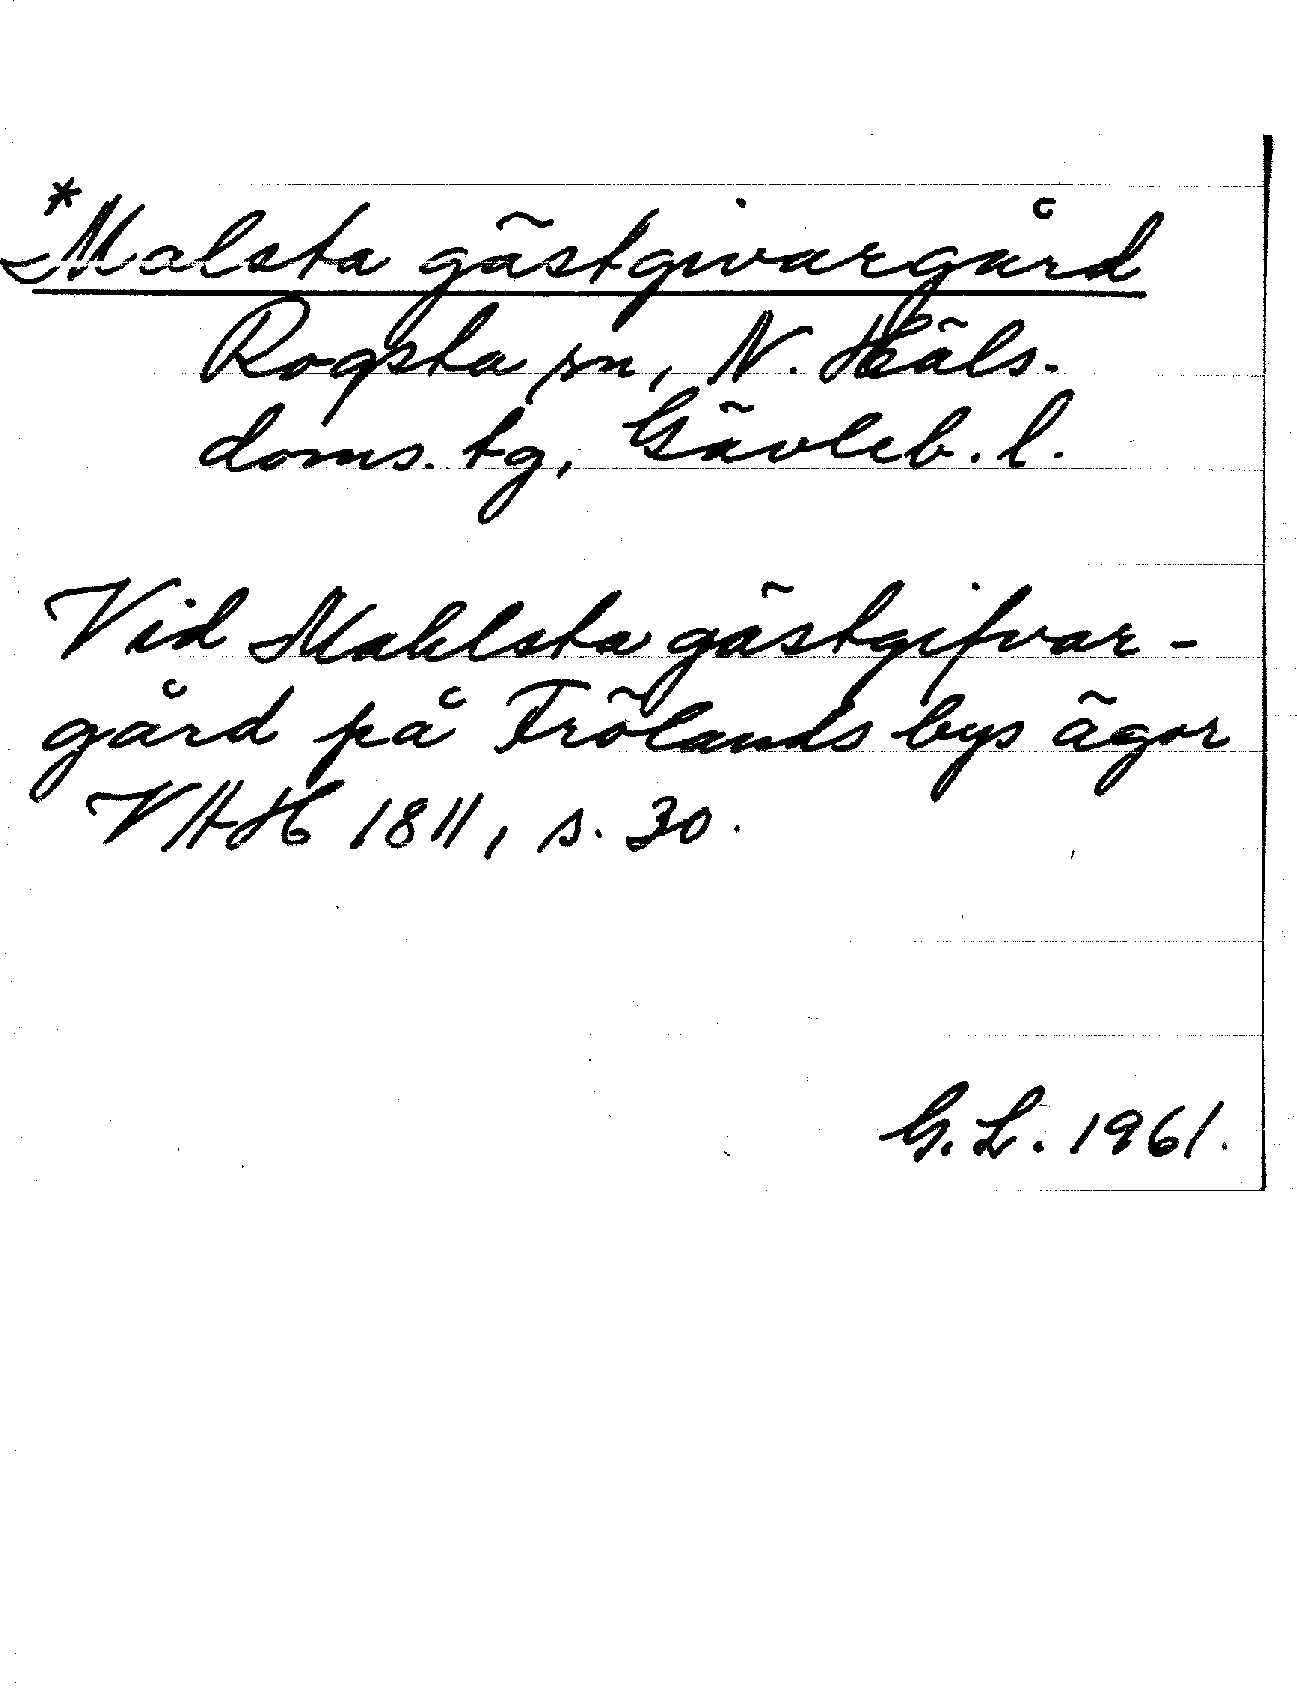 *Malsta gästgivargård
Rogsta sn, N. Häls.
doms. tg, Gävleb. l.
Vid Mahlsta gästgifvar-
gård på Frölands bys ägor
VHAH 1811, s. 30.
G.L. 1961.